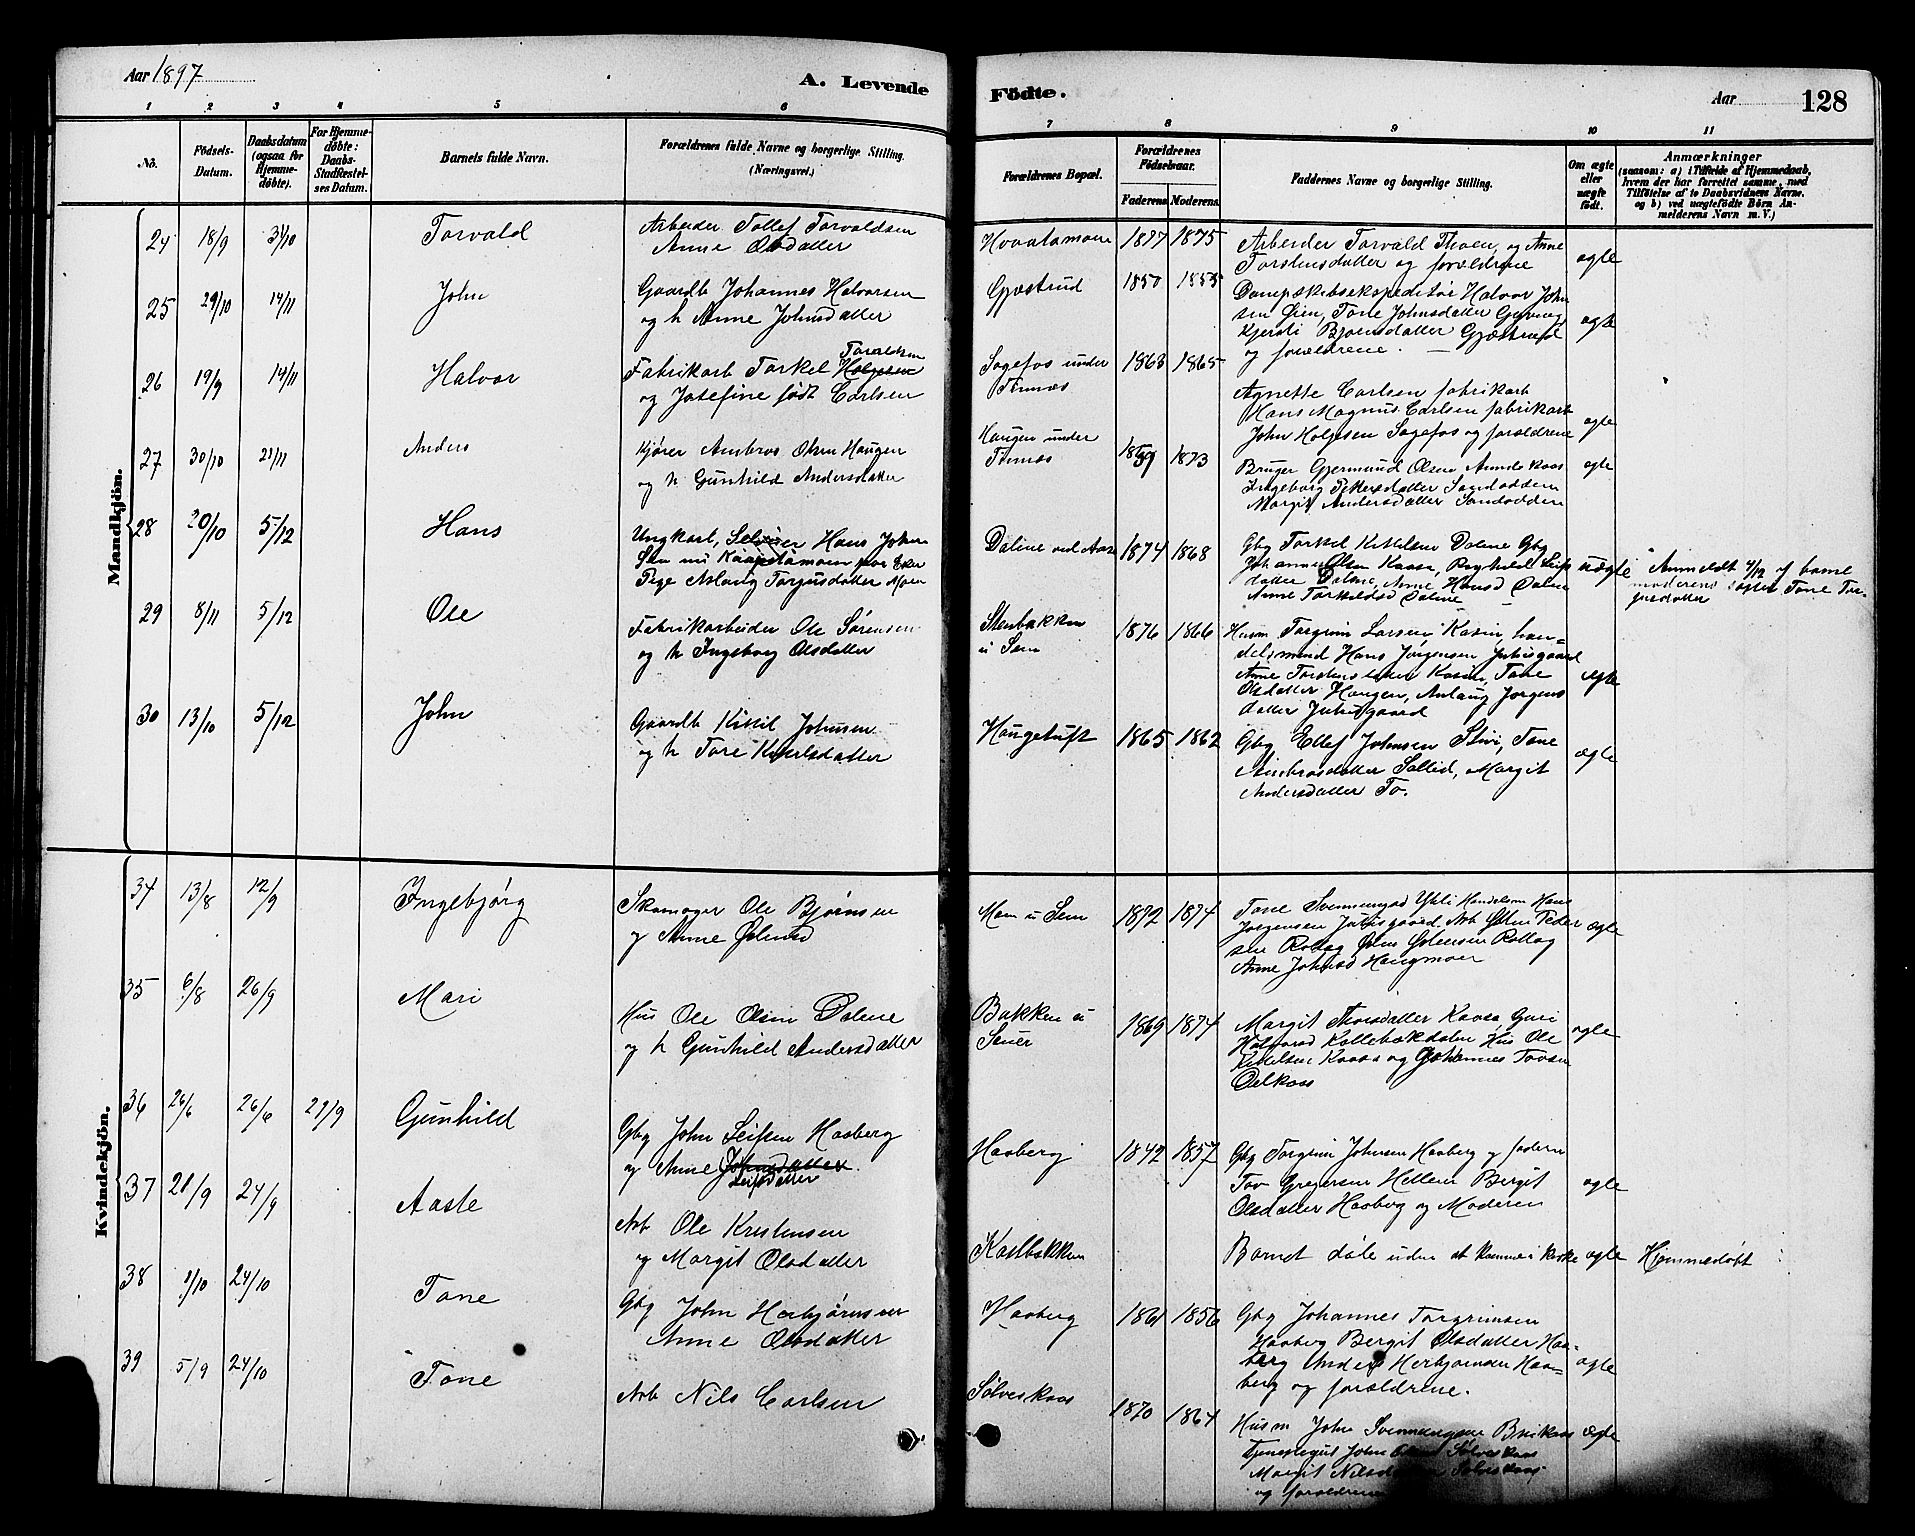 Aar 1897
A. Levende
Födte.
Aar
128
1 2 3 4 5 6 7 8 9 10 11
No.
Födsels-
Datum.
Daabsdatum
(ogsaa for
Hjemme-
døbte).
For Hjemme-
døbte:
Daabs-
Stadfæstel-
ses Datum.
Barnets fulde Navn.
Forældrenes fulde Navne og borgerlige Stilling.
(Næringsvei.)
Forældrenes Bopæl.
Forældrenes
Födselsaar.
Faderens. Moderens.
Faddernes Navne og borgerlige Stilling.
Om ægte
eller
uægte
født.
Anmærkninger
(saasom: a) i Tilfælde af Hjemmedaab,
hvem der har forrettet samme, med
Tilföielse af to Daabsvidners Navne.
og b) ved uægtefödte Börn An-
melderens Navn m. V.)
Mandkjön.
24 18/9 31/10 Torvald
Arbeider Tollef Torvaldsen
Anne Olsdatter
1877 1875
Arbeider Torvald Thoen, og Anne
Torstensdatter og forældrene
ægte
25 29/10 14/11 John
Gaardb Johannes Halvorsen
og h Anne Johnsdatter
Gjæstrud
1850 1855
Dampskibsekspeditør Halvor John
sen Øien, Tone Johnsdatter
Kjersti Bjørnsdatter Gjæstrud
og forældrene.
ægte
26 19/9 14/11 Halvor
Toraldsen
Fabrikarb Torkel Holgesen
og Josefine født Carlsen
Sagefos under
Tinnæs
1863 1865
Agnette Carlsen fabrikarb
Hans Magnus Carlsen fabrikarb
John Holgesen Sagefos og forældrene
ægte
27 30/10 21/11 Anders
Kjører Ambros Olsen Haugen
og h Gunhild Andersdatter
Haugen under
Tinnæs
1873
Bruger Gjermund Olsen
Ingeborg Pettersdatter Sandodden
Margit Andersdatter Sandodden
ægte
28 20/10 5/12 Hans
Ungkarl, Hans John
sen
Pige Aslaug Torgusdatter Moen
Dalene ved
1874 1868
Gbg Torkel Kittelsen Dalene Gbg
Johannes Olsen Kaasa, Ragnhild Leifs
datter Dalene, Anne Hansd Dalene
Anne Torkildsd Dalene
uægte
Anmeldt 4/12 af barne
moderens søster Tone Tor-
jusdatter
29 8/11 5/12 Ole
Fabrikarbeider Ole Sørensen
og h Ingeborg Olsdatter
Stenbakken
u Sem
1876 1866
Husm Torgrim Larsen Kasin, han-
delsmand Hans Jørgensen Jutisgaard
Anne Torstensdatter Kasin, Tone
Olsdatter Haugen, Aslaug Jørgens
datter Jutisgaard
ægte
30 13/10 5/12 John
Gaardb Kittil Johnsen
og h Tore Kittilsdatter
Haugetuft
1865 1862
Gbg Ellef Johnsen Stivi, Tone
Ambrosdatter Sollid, Margit
Andersdatter To.
ægte
Kvindekjön.
34 13/8 12/9 Ingebjørg
Skomager Ole Bjørnsen
og Anne
Moen u Sem
1872 1874
Tone Svenningsd Handelsm Hans
Jørgensen Jutisgaard Arb Peder
sen Rollag Rollag
Anne Johnsd Haugmoen
ægte
35 6/8 26/9 Mari
Hus Ole Olsen Dalene
og h Gunhild Andersdatter
Bakken u
1869 1874
Margit Thorsdatter Kaasa Guri
Halvorsd Kollebækdalen Hus Ole
Kittelsen Kaasa og Johannes Tovsen
ægte
36 26/6 26/6 27/9 Gunhild
Gbg John Leifsen Haaberg
og Anne Johnsdatter
Leifsdatter
Haaberg
1842 1857
Gbg Torgrim Johnsen Haaberg og faderen
Tov Gregersen Hellem Bergit
Olsdatter Haaberg og Moderen
ægte
37 21/9 24/9 Aaste
Arb Ole Kristensen
og Margit Olsdatter
Kaslbakken
Barnet døde uden at komme i kirke
ægte
Hjemmedøbt
38 1/10 24/10 Tone
Gbg John Herbjørnsen
Anne Olsdatter
Haaberg
1861 1856
Gbg Johannes Torgrimsen
Haaberg Bergit Olsdatter Haa-
berg Anders Herbjørnsen Haa-
berg og forældrene.
ægte
39 5/9 24/10 Tone
Arb Nils Carlsen
Sølveskaas
1870 1864
Husm John Svenningsen
Tjenestegut John Sølveskaas
Margit Nilsdatter Sølveskaas
og forældrene
ægte